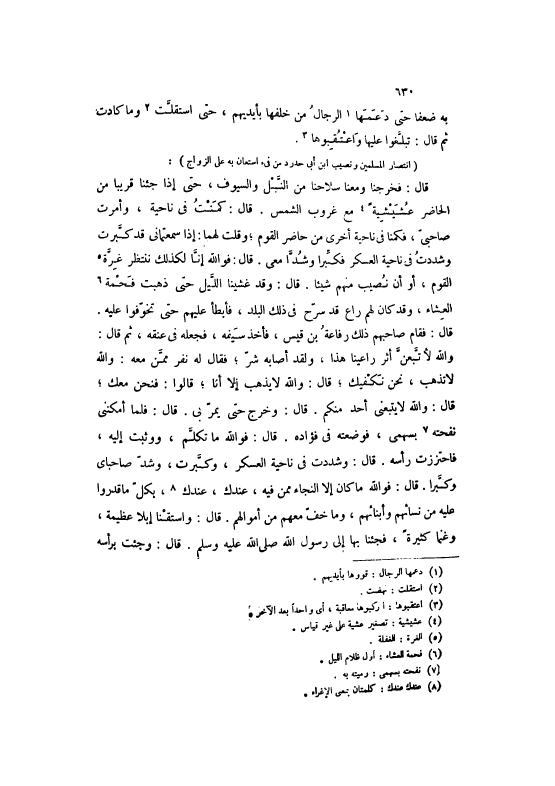 ٦٣٠
به ضعفا حتى دعَمَها ١ الرجالُ من خلفها بأيديهم ، حتى استقلَّت ٢ وما كادت
ثم قال : تبلَّغوا عليها واعْتُقِبوها ٣ .
( انتصار المسلمين ونصيب ابن أبي حدرد من فىء استعان به على الزواج ) :
قال : فخرجنا ومعنا سلاحنا من النَّبْل والسيوف ، حتى إذا جئنا قريبا من
الحاضر عُشَيْشِيةً ٤ مع غروب الشمس . قال : كَمَنْتُ فى ناحية ، وأمرت
صاحبىّ ، فكمنا فى ناحية أخرى من حاضر القوم ؛ وقلت لهما : إذا سمعتمانى قد كَبَّرت
وشددتُ فى ناحية العسكر فكبِّرا وشُدَّا معى . قال : فوالله إنَّا لكذلك ننتظر غِرَّة ٥
القوم ، أو أن نُصيب منهم شيئا . قال : وقد غشينا اللَّيل حتى ذهبت فَحْمة ٦
العِشاء ، وقد كان لهم راع قد سرّح فى ذلك البلد ، فأبطأ عليهم حتى تخوّفوا عليه .
قال : فقام صاحبهم ذلك رفاعة بُن قيس ، فأخذ سَيفه ، فجعله فى عنقه ، ثم قال :
والله لأتَّبعنَّ أثر راعينا هذا ، ولقد أصابه شرّ ؛ فقال له نفر ممَّن معه : والله
لاتذهب ، نحن نَكْفيك ؛ قال : والله لايذهب إلا أنا ؛ قالوا : فنحن معك ؛
قال : والله لايتبعنى أحد منكم . قال : وخرج حتى يمرّ بى . قال : فلما أمكننى
نفحته ٧ بسهمى ، فوضعته فى فؤاده . قال : فوالله ما تكلَّم ، ووثبت إليه ،
فاحتززت رأسه . قال : وشددت فى ناحية العسكر ، وكبَّرت ، وشدّ صاحباى
وكبَّرا . قال : فوالله ماكان إلا النجاء ممن فيه ، عندك ، عندك ٨ ، بكلّ ماقدروا
عليه من نسائهم وأبنائهم ، وما خفّ معهم من أموالهم . قال : واستقْنا إبلا عظيمة ،
وغنما كثيرةً ، فجئنا بها إلى رسول الله صلى الله عليه وسلم . قال : وجئت برأسه
(١) دعمها الرجال : قووها بأيديهم .
(٢) استقلت : نهضت .
(٣) اعتقبوها : اركبوها معاقبة ، أى واحداً بعد الآخر .
(٤) عشيشية : تصغير عشية على غير قياس .
(٥) الغرة : الغفلة .
(٦) فحمة العشاء : أول ظلام الليل .
(٧) نفحته بسهمى : رميته به .
(٨) عندك عندك : كلمتان بمعى الإغراء .